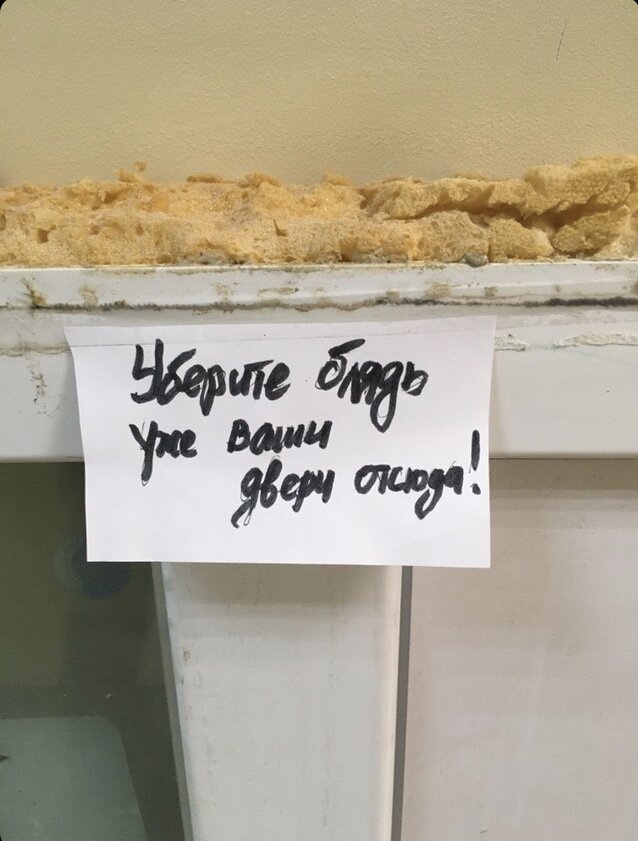 Уберите блядь
уже ваши
двери отсюда!